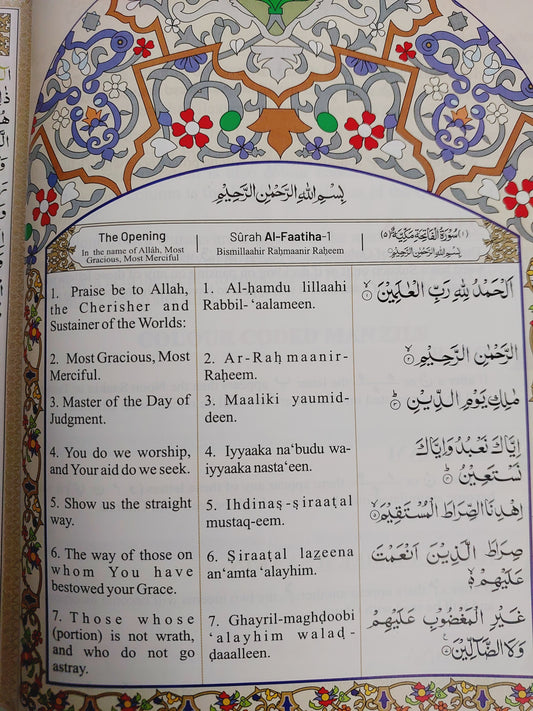 بِسْمِ اللهِ الرَّحْمٰنِ الرَّحِيْمِ
The Opening
In the name of Allâh, Most
Gracious, Most Merciful
Sûrah Al-Faatiha-1
Bismillaahir Raḥmaanir Raḥeem
(١) سُوْرَةُ الْفَاتِحَةِ مَكِّيَّةٌ (٥)
بِسْمِ اللهِ الرَّحْمٰنِ الرَّحِيْمِ
1. Praise be to Allah,
the Cherisher and
Sustainer of the Worlds:
1. Al-ḥamdu lillaahi
Rabbil-‘aalameen.
اَلْحَمْدُ لِلّٰهِ رَبِّ الْعٰلَمِيْنَ ۙ‏ ١
2. Most Gracious, Most
Merciful.
2. Ar-Raḥmaanir-
Raḥeem.
الرَّحْمٰنِ الرَّحِيْمِ ۙ‏ ٢
3. Master of the Day of
Judgment.
3. Maaliki yaumid-
deen.
مٰلِكِ يَوْمِ الدِّيْنِ ۗ‏ ٣
4. You do we worship,
and Your aid do we seek.
4. Iyyaaka na‘budu wa-
iyyaaka nasta‘een.
اِيَّاكَ نَعْبُدُ وَاِيَّاكَ
نَسْتَعِيْنُ ۗ‏ ٤
5. Show us the straight
way.
5. Ihdinaṣ-ṣiraaṭal
mustaq-eem.
اِهْدِنَا الصِّرَاطَ الْمُسْتَقِيْمَ ۙ‏ ٥
6. The way of those on
whom You have
bestowed your Grace.
6. Ṣiraaṭal lazeena
an‘amta ‘alayhim.
صِرَاطَ الَّذِيْنَ اَنْعَمْتَ
عَلَيْهِمْ ۙ‏ ٦
7. Those whose
(portion) is not wrath,
and who do not go
astray.
7. Ghayril-maghḍoobi
‘alayhim walaḍ-
ḍaaalleen.
غَيْرِ الْمَغْضُوْبِ عَلَيْهِمْ
وَلَا الضَّآلِّيْنَ ٧